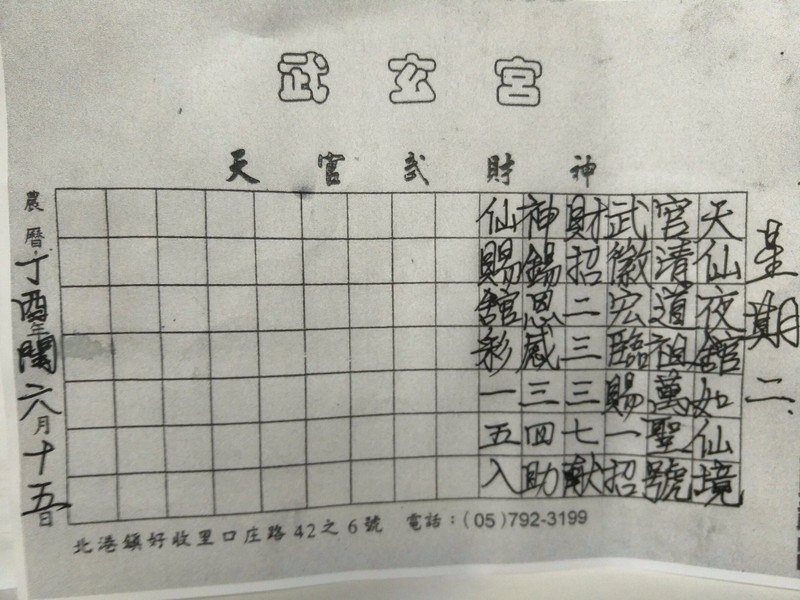 武玄宮
天官武財神
星期二、
天仙夜舘如仙境
官清道祖萬聖號
武徽宏臨賜一招
財招二三三七献
神錫恩感三四助
仙賜舘彩一五入
農曆丁酉年閏六月十五日
北港鎮好收里口庄路42之6號 電話：(05)792-3199